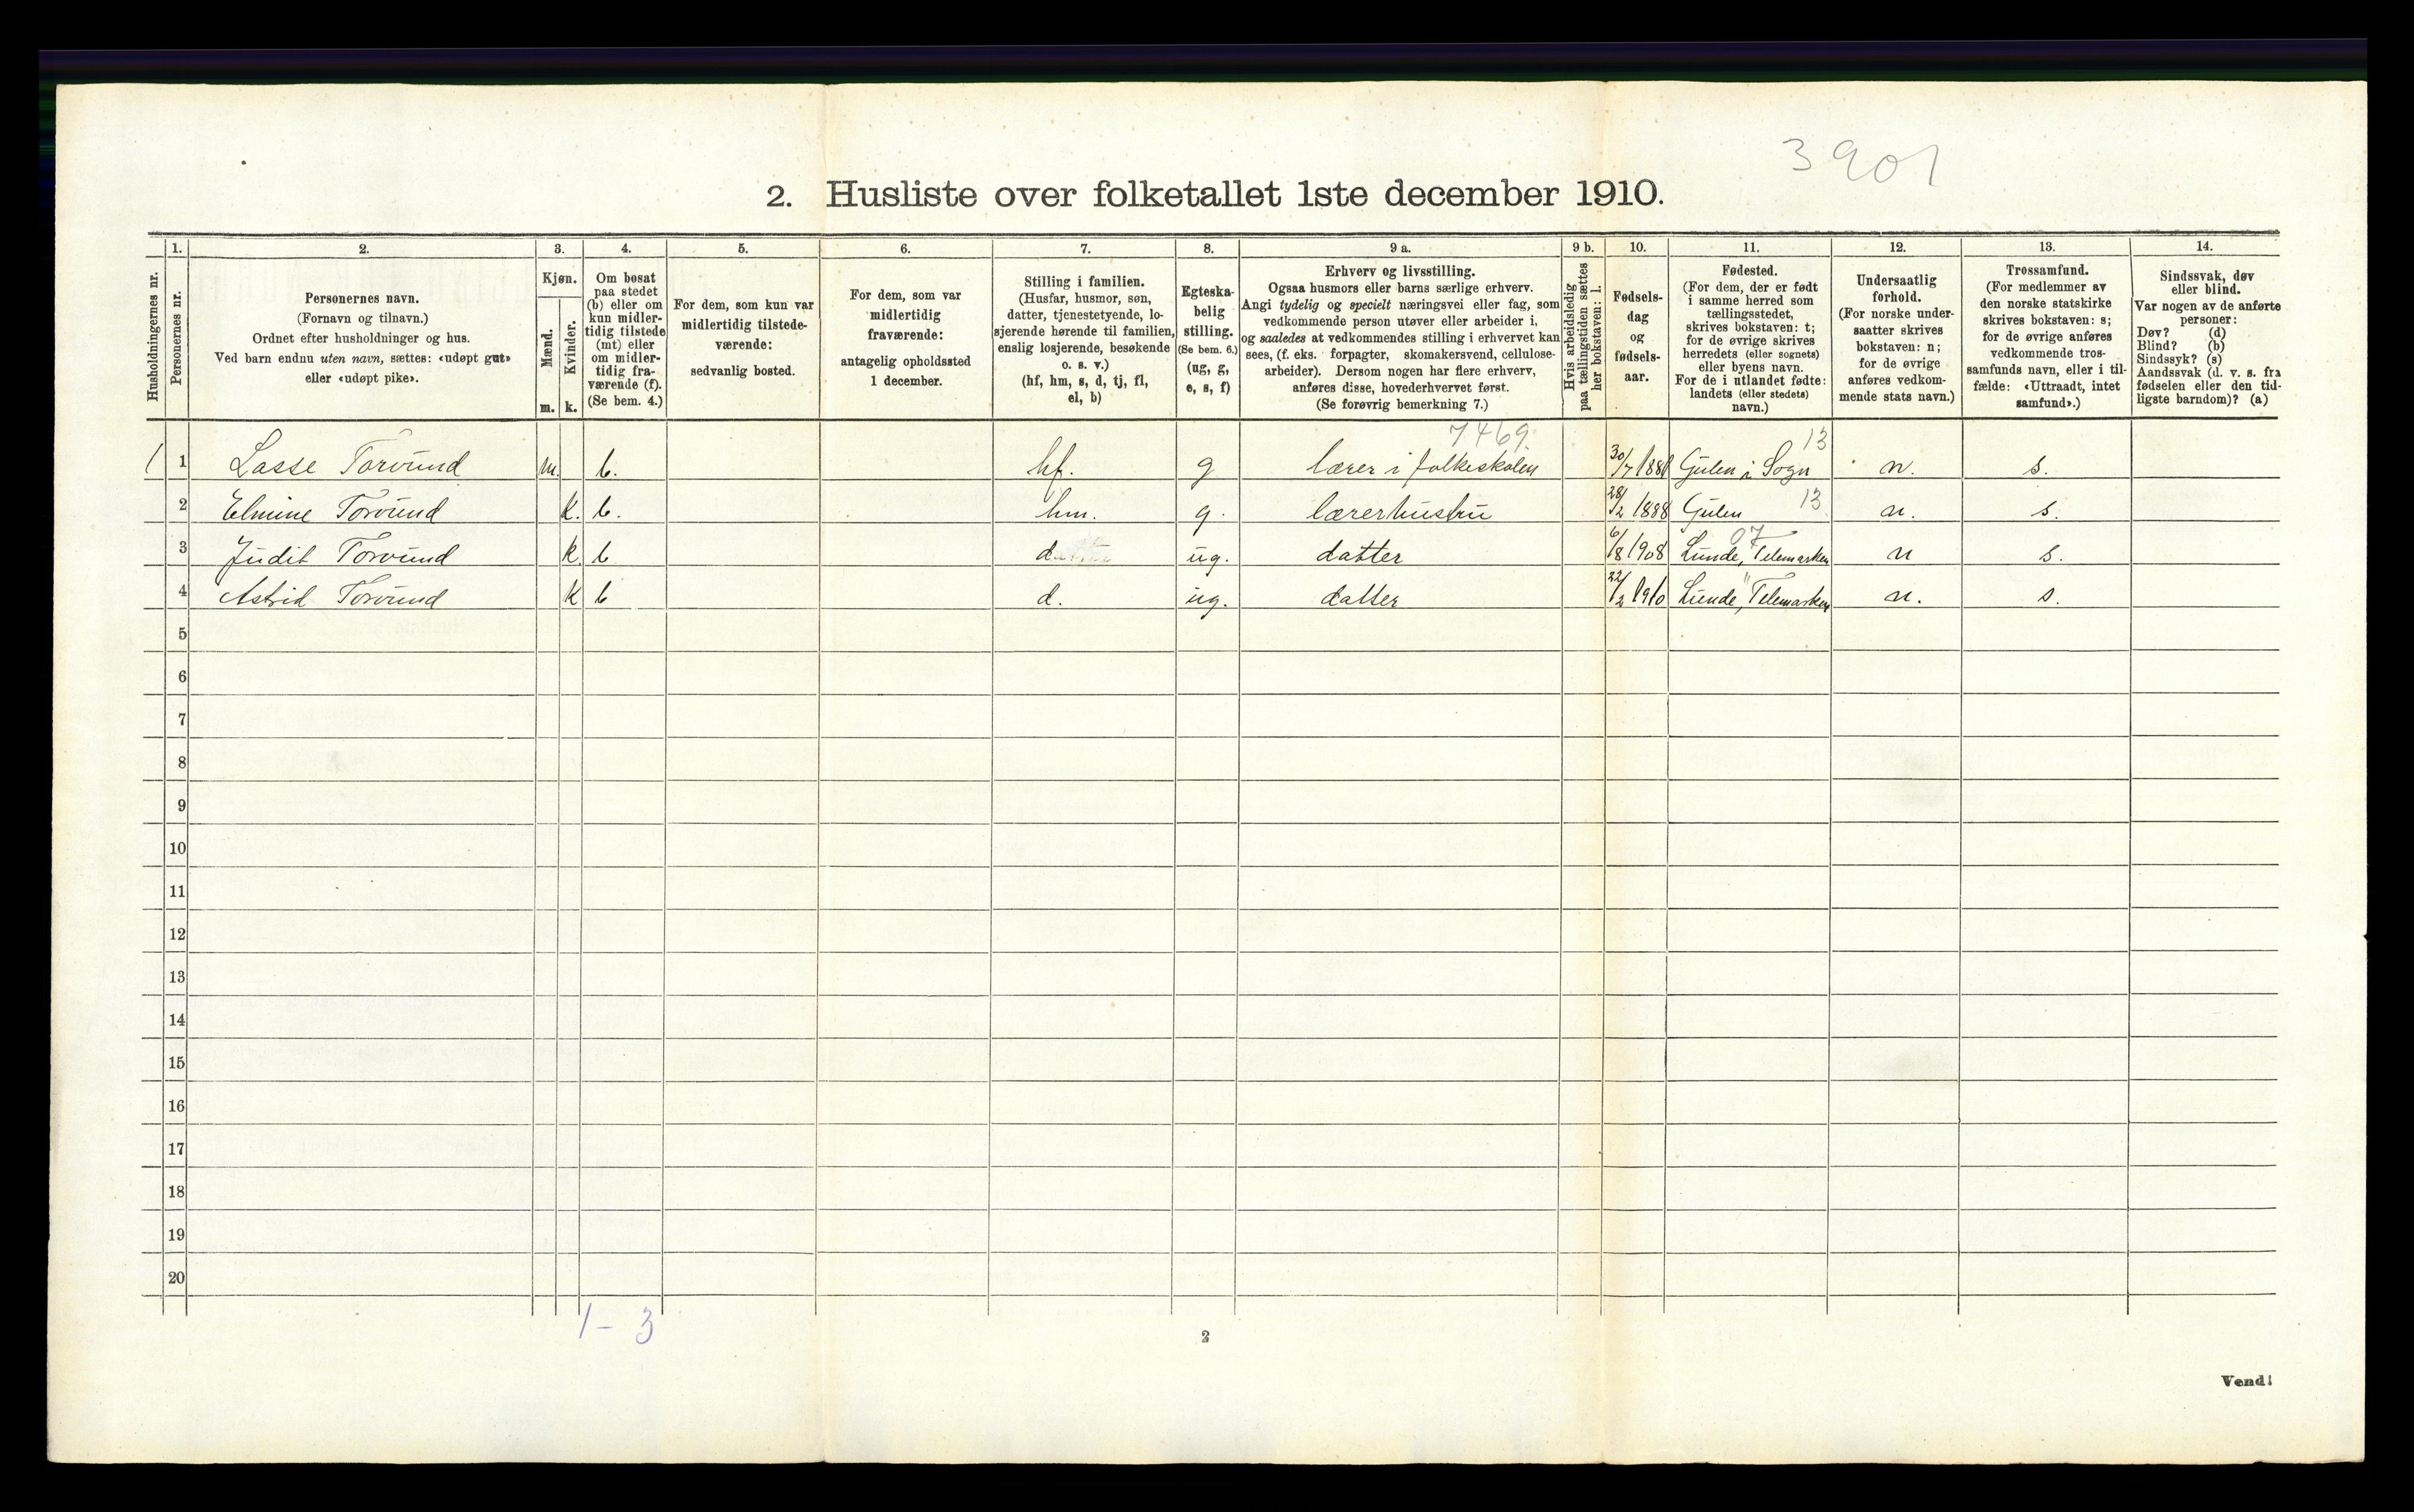 3901
2. Husliste over folketallet 1ste december 1910.
Husholdningernes nr.
1.
Personernes nr.
2.
Personernes navn.
(Fornavn og tilnavn.)
Ordnet efter husholdninger og hus.
Ved barn endnu uten navn, sættes: «udøpt gut»
eller «udøpt pike».
3.
Kjøn.
Mænd.
m.
Kvinder.
k.
4.
Om bosat
paa stedet
(b) eller om
kun midler-
tidig tilstede
(mt) eller
om midler-
tidig fra-
værende (f).
(Se bem. 4.)
5.
For dem, som kun var
midlertidig tilstede-
værende:
sedvanlig bosted.
6.
For dem, som var
midlertidig
fraværende:
antagelig opholdssted
1 december.
7.
Stilling i familien.
(Husfar, husmor, søn,
datter, tjenestetyende, lo-
sjerende hørende til familien,
enslig losjerende, besøkende
o. s. v.)
(hf, hm, s, d, tj, fl,
el, b)
8.
Egteska-
belig
stilling.
(Se bem. 6.)
(ug, g,
e, s, f)
9 a.
Erhverv og livsstilling.
Ogsaa husmors eller barns særlige erhverv.
Angi tydelig og specielt næringsvei eller fag, som
vedkommende person utøver eller arbeider i,
og saaledes at vedkommendes stilling i erhvervet kan
sees, (f. eks. forpagter, skomakersvend, cellulose-
arbeider). Dersom nogen har flere erhverv,
anføres disse, hovederhvervet først.
(Se forøvrig bemerkning 7.)
9 b.
Hvis arbeidsledig
paa tællingstiden sættes
her bokstaven: l.
10.
Fødsels-
dag
og
fødsels-
aar.
11.
Fødested.
(For dem, der er født
i samme herred som
tællingsstedet,
skrives bokstaven: t;
for de øvrige skrives
herredets (eller sognets)
eller byens navn.
For de i utlandet fødte:
landets (eller stedets)
navn.)
12.
Undersaatlig
forhold.
(For norske under-
saatter skrives
bokstaven: n;
for de øvrige
anføres vedkom-
mende stats navn.)
13.
Trossamfund.
(For medlemmer av
den norske statskirke
skrives bokstaven: s;
for de øvrige anføres
vedkommende tros-
samfunds navn, eller i til-
fælde: «Uttraadt, intet
samfund».)
14.
Sindssvak, døv
eller blind.
Var nogen av de anførte
personer:
Døv? (d)
Blind? (b)
Sindssyk? (s)
Aandssvak (d. v. s. fra
fødselen eller den tid-
ligste barndom)? (a)
7469. 13
1 1 Lasse Torvund m. b. hf. g lærer i folkeskolen 30/7 1881 Gulen i Sogn n. s.
2 Elmine Torvund k. b. hm. g. lærerhustru 28/2 1888 Gulen 13. n. s.
07
3 Judit Torvund k b d ug. datter 6/8 1908 Lunde, Telemarken n s.
4 Astrid Torvund k b d. ug. datter 22/2 1910 Lunde, Telemarken n. s.
5
6
7
8
9
10
11
12
13
14
15
16
17
18
19
20
1 - 3
2
Vend!